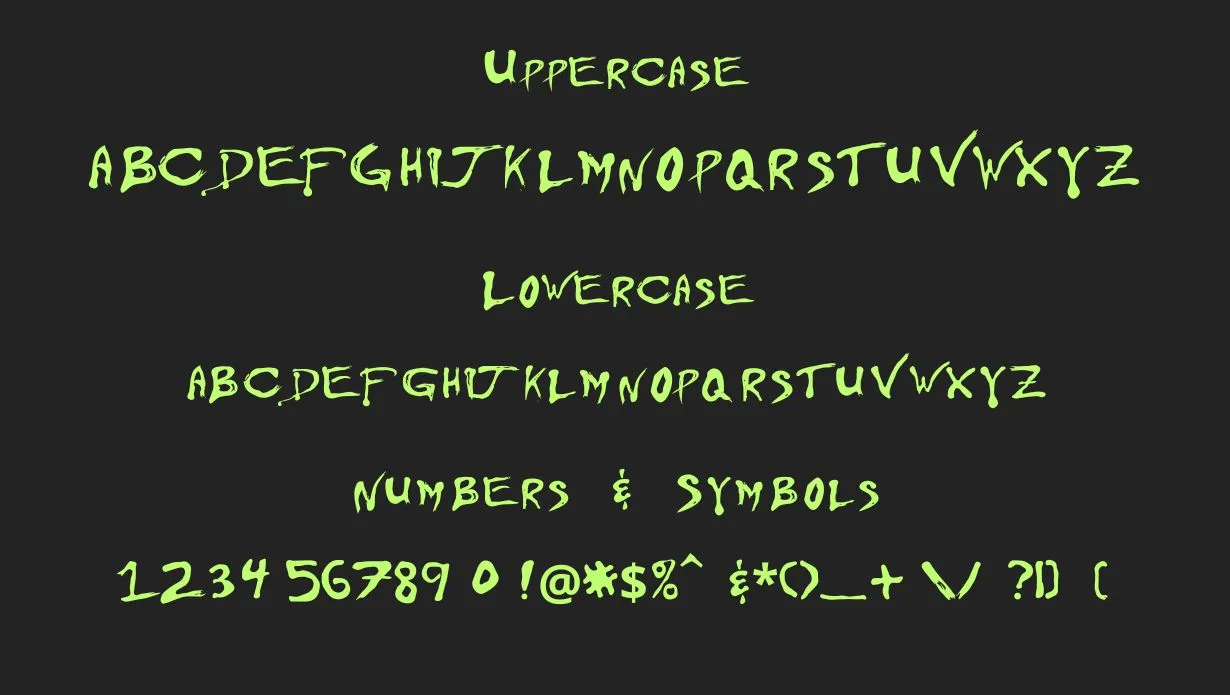 UPPERCASE
ABCDEFGHIJKLMNOPQRSTUVWXYZ
LOWERCASE
ABCDEFGHIJKLMNOPQRSTUVWXYZ
NUMBERS & SYMBOLS
1234567890 !@*$%^ &*()_+ \/ ?[] (